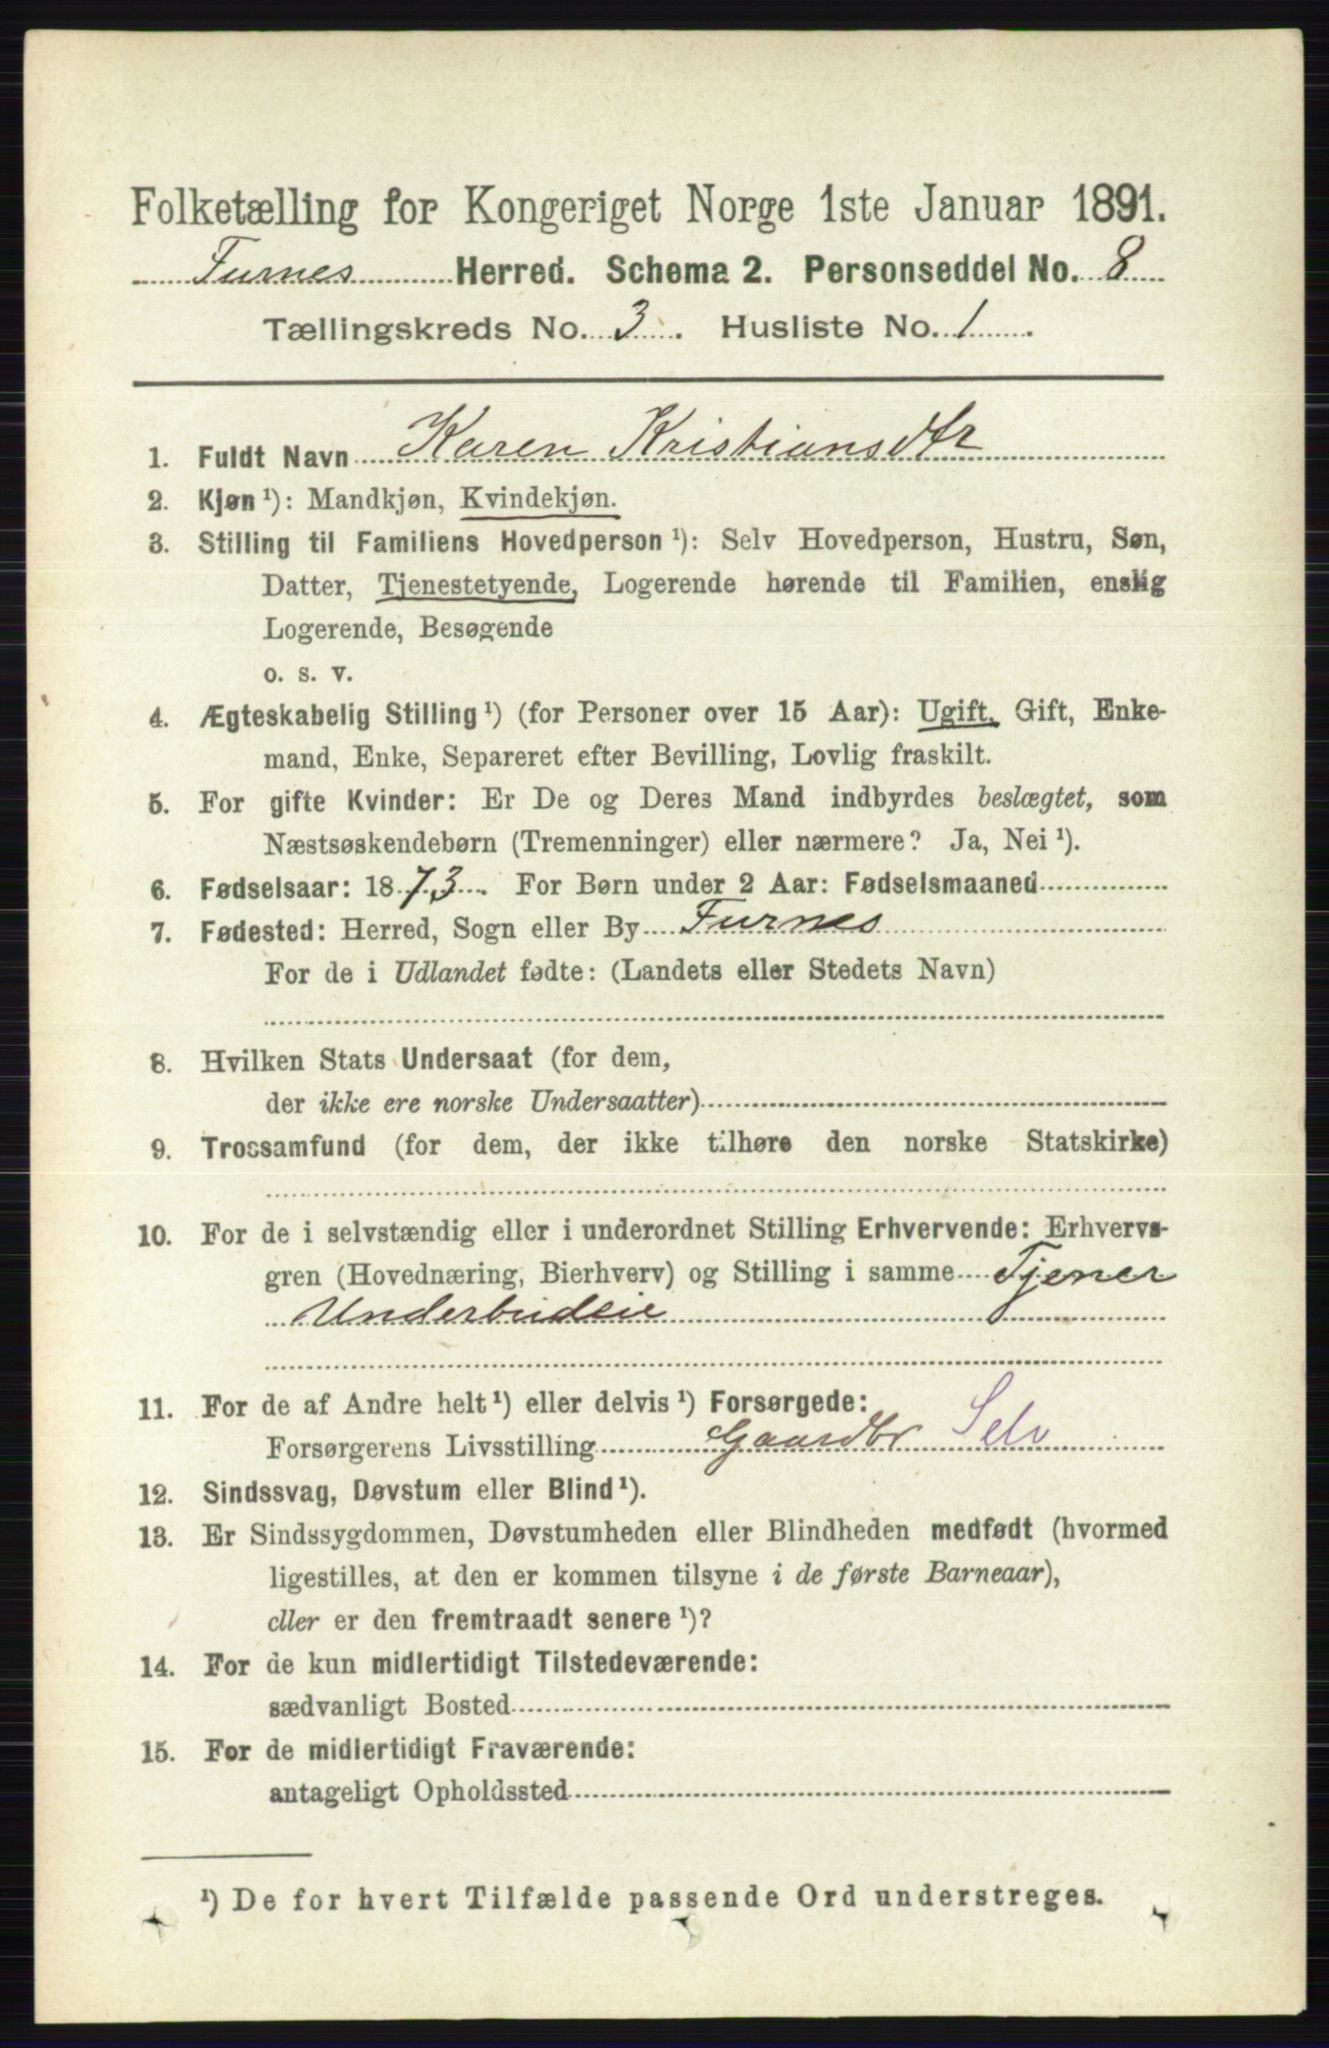 Folketælling for Kongeriget Norge 1ste Januar 1891.
Furnes Herred. Schema 2. Personseddel No. 8
Tællingskreds No. 3. Husliste No. 1.
1. Fuldt Navn Karen Kristiansdtr
2. Kjøn ¹): Mandkjøn, Kvindekjøn.
3. Stilling til Familiens Hovedperson ¹): Selv Hovedperson, Hustru, Søn,
Datter, Tjenestetyende, Logerende hørende til Familien, enslig
Logerende, Besøgende
o. s. v.
4. Ægteskabelig Stilling ¹) (for Personer over 15 Aar): Ugift, Gift, Enke-
mand, Enke, Separeret efter Bevilling, Lovlig fraskilt.
5. For gifte Kvinder: Er De og Deres Mand indbyrdes beslægtet, som
Næstsøskendebørn (Tremenninger) eller nærmere? Ja, Nei ¹).
6. Fødselsaar: 1873. For Børn under 2 Aar: Fødselsmaaned
7. Fødested: Herred, Sogn eller By Furnes
For de i Udlandet fødte: (Landets eller Stedets Navn)
8. Hvilken Stats Undersaat (for dem,
der ikke ere norske Undersaatter)
9. Trossamfund (for dem, der ikke tilhøre den norske Statskirke)
10. For de i selvstændig eller i underordnet Stilling Erhvervende: Erhvervs-
gren (Hovednæring, Bierhverv) og Stilling i samme Tjener
Underbudeie
11. For de af Andre helt ¹) eller delvis ¹) Forsørgede:
Forsørgerens Livsstilling Gaardbr Selv
12. Sindssvag, Døvstum eller Blind ¹).
13. Er Sindssygdommen, Døvstumheden eller Blindheden medfødt (hvormed
ligestilles, at den er kommen tilsyne i de første Barneaar),
eller er den fremtraadt senere ¹)?
14. For de kun midlertidigt Tilstedeværende:
sædvanligt Bosted
15. For de midlertidigt Fraværende:
antageligt Opholdssted
¹) De for hvert Tilfælde passende Ord understreges.